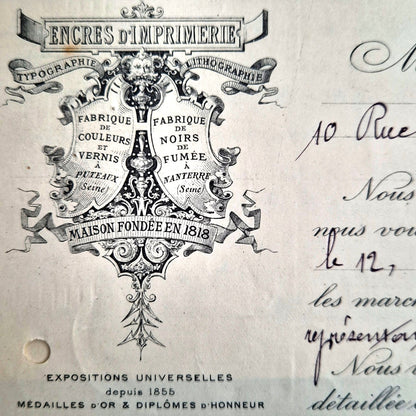 ENCRES D'IMPRIMERIE
TYPOGRAPHIE LITHOGRAPHIE
FABRIQUE
DE
COULEURS
ET
VERNIS
À
PUTEAUX
(Seine)
FABRIQUE
DE
NOIRS
DE
FUMÉE
À
NANTERRE
(Seine)
MAISON FONDÉE EN 1818
EXPOSITIONS UNIVERSELLES
depuis 1855
MÉDAILLES D'OR & DIPLÔMES D'HONNEUR
M
10 Rue
Nous
nous vou
le 12,
les march
représentan
Nous
détaillée